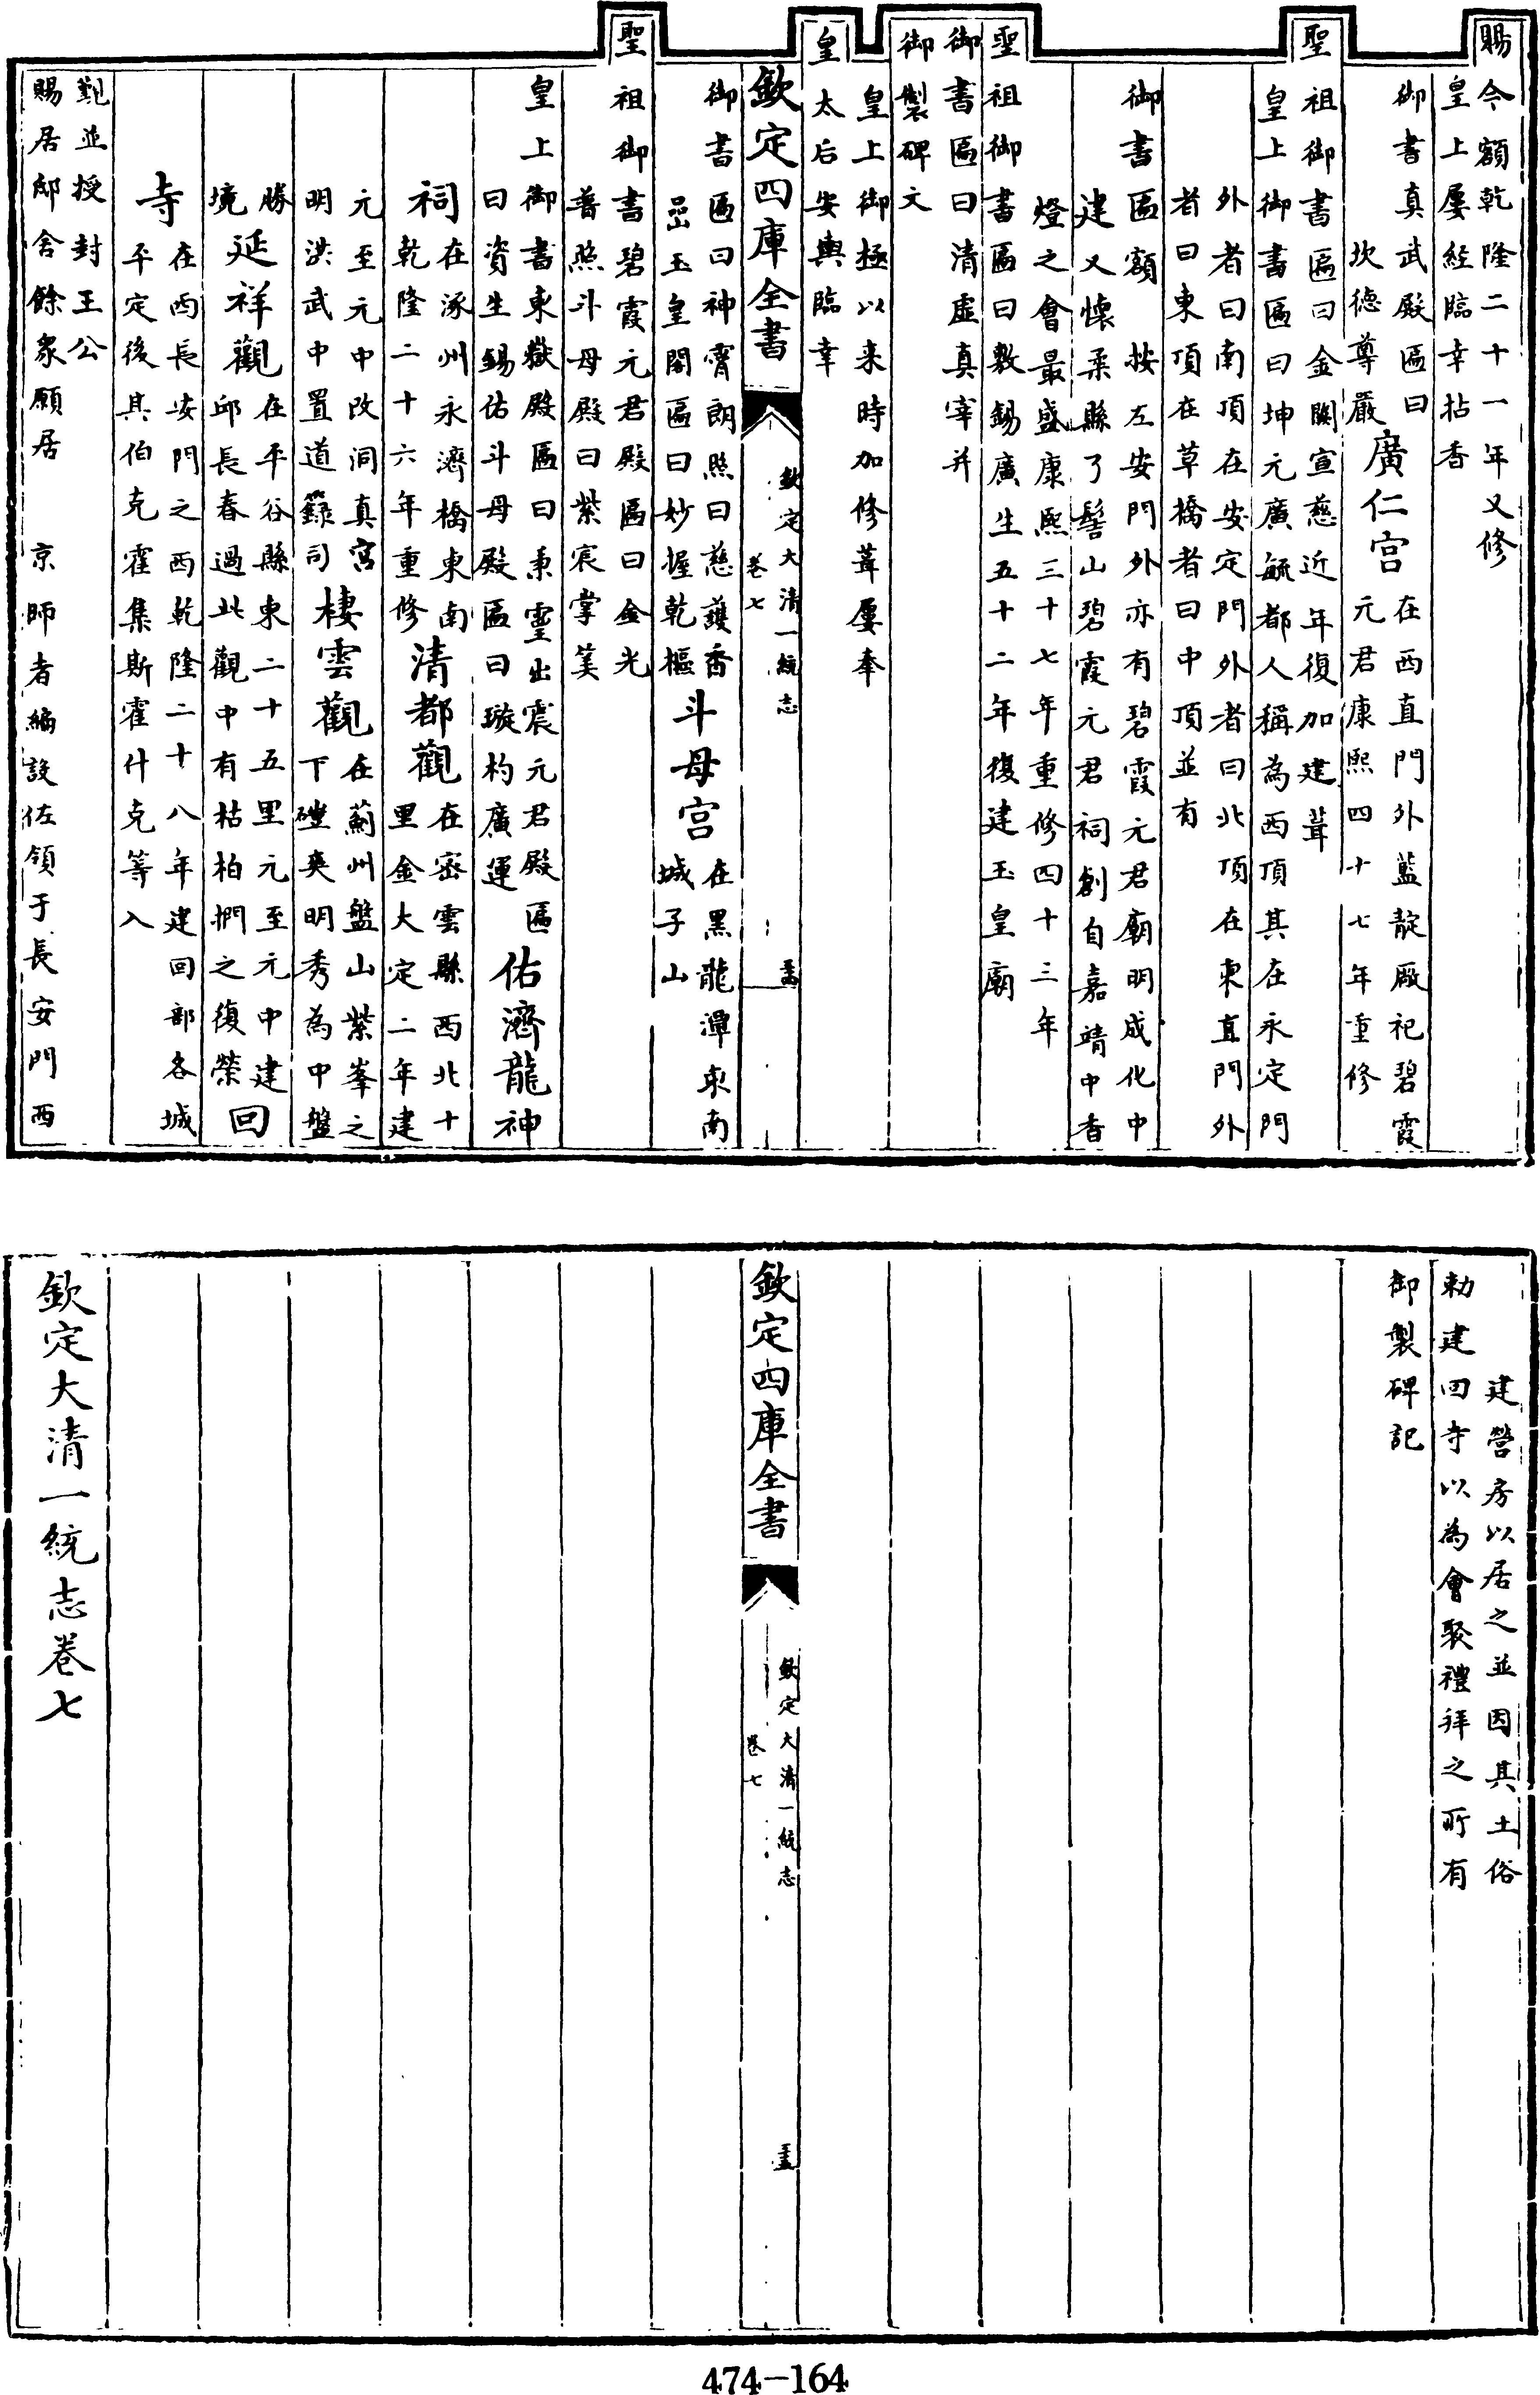 賜今額乾隆二十一年又修
皇上屢經臨幸拈香
御書真武殿匾曰
坎德尊嚴
廣仁宫
在西直門外藍靛厰祀碧霞
元君康熙四十七年重修
聖祖御書匾曰金闕宣慈近年復加建葺
皇上御書匾曰坤元廣毓都人稱為西頂其在永定門
外者曰南頂在安定門外者曰北頂在東直門外
者曰東頂在草橋者曰中頂並有
御書匾額
按左安門外亦有碧霞元君廟明成化中
建又懷柔縣了髻山碧霞元君祠創自嘉靖中香
燈之會最盛康熙三十七年重修四十三年
聖祖御書匾曰敷錫廣生五十二年復建玉皇廟
御書匾曰清虛真宰并
御製碑文
皇上御極以来時加修葺屢奉
皇太后安輿臨幸
欽定四庫全書
欽定大清一統志
卷七
御書匾曰神霄朗照曰慈護香
嵒玉皇閣匾曰妙握乾樞
斗母宫
在黑龍潭東南
城子山
聖祖御書碧霞元君殿匾曰金光
普照斗母殿曰紫宸掌筭
皇上御書東嶽殿匾曰東靈出震元君殿匾
曰資生錫佑斗母殿匾曰璇杓廣運
佑濟龍神
祠
在涿州永濟橋東南
乾隆二十六年重修
清都觀
在宻雲縣西北十
里金大定二年建
元至元中改洞真宫
明洪武中置道籙司
棲雲觀
在薊州盤山紫峯之
下磴爽明秀為中盤
勝
境
延祥觀
在平谷縣東二十五里元至元中建
邱長春過此觀中有枯柏捫之復榮
回
寺
在西長安門之西乾隆二十八年建回部各城
平定後其伯克霍集斯霍什克等入
覲並授封王公
賜居邸舍餘衆願居京師者編設佐領于長安門西
建營房以居之並因其土俗
勅建回寺以為會聚禮拜之所有
御製碑記
欽定四庫全書
欽定大清一統志
卷七
欽定大清一統志卷七
474-164